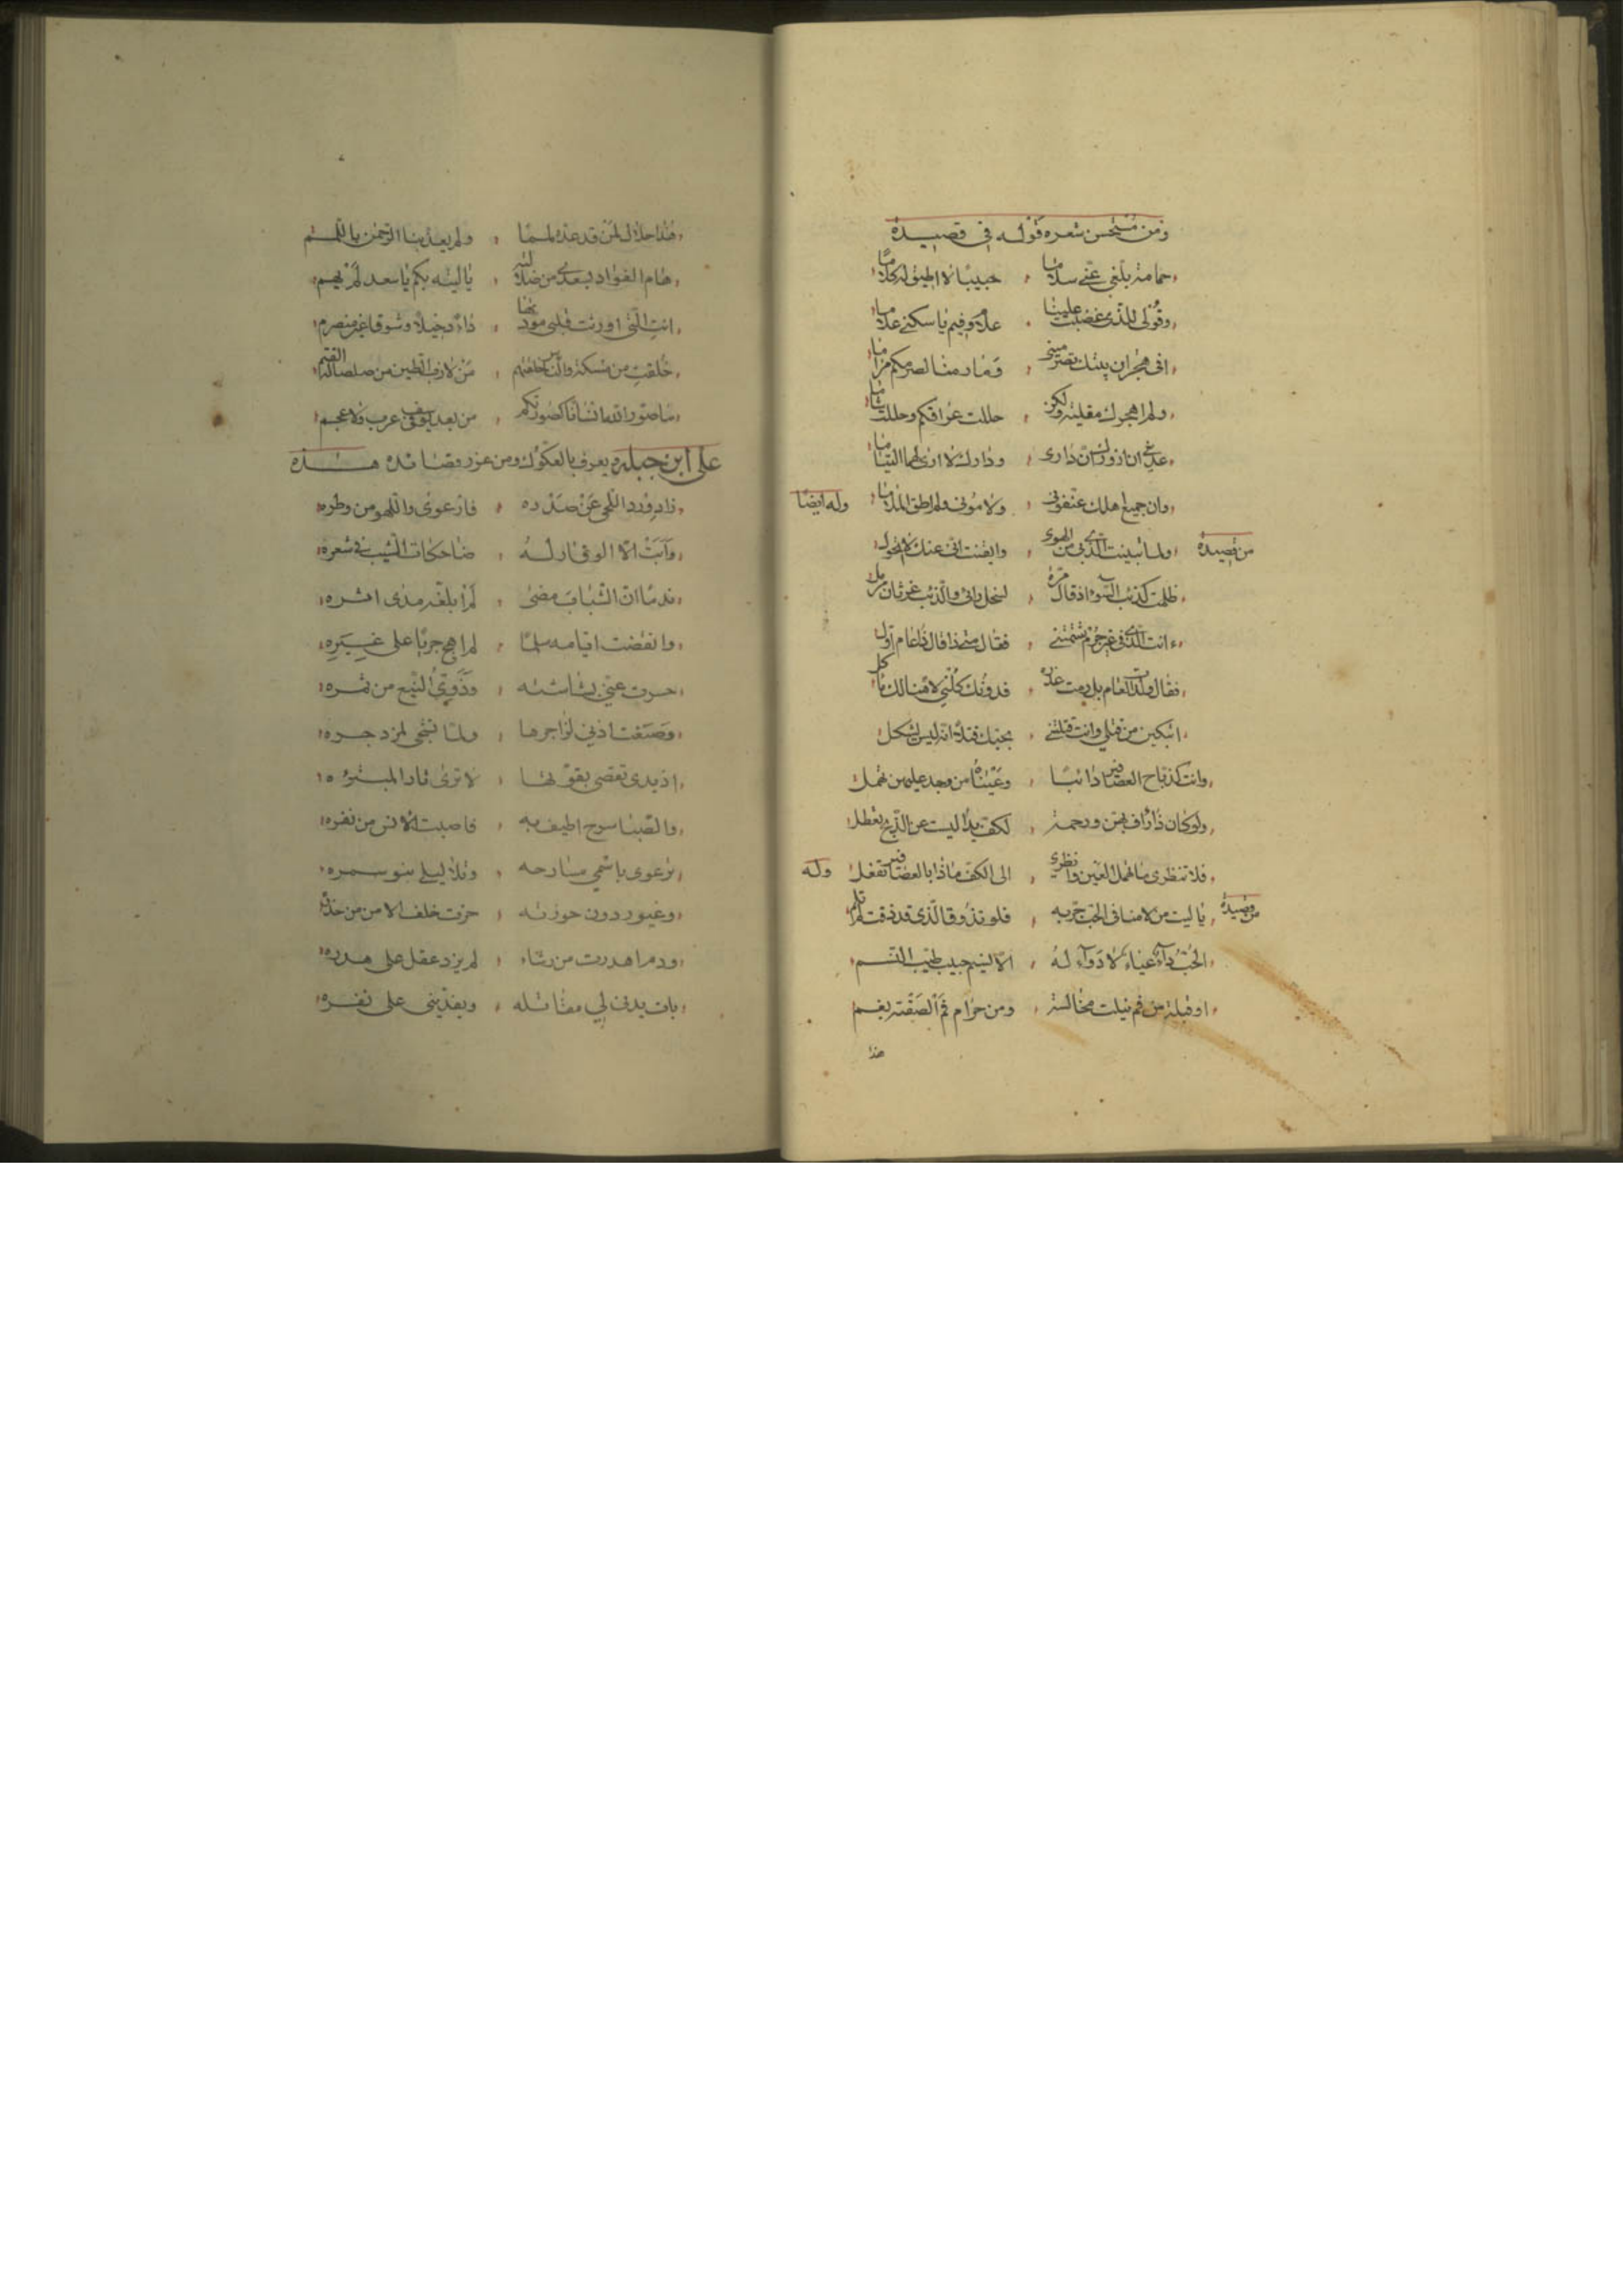 ومن مستحسن شعره قوله في قصيدة
حمامة بلغي عني سلاما ، حبيبا لا اطيق له كلاما
وقولي للذي غضبت علينا ، علام وفيم يا سكني علاما
افي هجران بيتك تصرميني ، وما رمنا لصرمكم مراما
ولم اهجرك مقلية ولكن
عداني ان ازورك ان داري ، ودارك لا ارى لهما التياما
وان جميع اهلك عنفوني ، ولاموني ولم اطق الملاما وله ايضا
من قصيدة ولما تبينت الذي بي من الهوى ، وايقنت اني عنك لا اتحول
ظلمت كذئب السوء اذ قال مرة ، لسخل رأى والذئب غرثان مرمل
ءانت الذي في غير جرم شتمتني ، فقال متى ذا قال ذا عام اول
فقال ولدت العام بل رمت غدرة ، فدونك كلني لا هنا لك مأكل
اتبكين من قتلي وانت قتلتني ، بحبك قتلا انه ليس يشكل
وانت كذباح العصافير دائبا ، وعيناه من وجد عليهن تهمل
ولو كان ذا رأف بهن ورحمة ، لكف يدا ليست عن الذبح تعطل
فلا تنظري ما تهمل العين وانظري ، الى الكف ماذا بالعصافير تفعل وله
من قصيدة يا ليت من لامنا في الحب جربه ، فلو تذوق الذي قد ذقت لم تلم
الحب داء عياء لا دواء له ، الا نسيم حبيب طيب النسم
او قبلة من فم نيلت مخالسة ، ومن حرام فم الصقته بفم
هذا
هذا حلال لمن قد عده لمما ، ولم يعذبنا الرحمن باللمم
هام الفؤاد بسعدى من ضلالته ، يا ليته بكم يا سعد لم يهم
انت التي اورثت قلبي مودتها ، داء دخيلا وشوقا غير منصرم
خلقت من مسكة والناس خلقتهم ، من لازب الطين من صلصاله
ما صور الله انسانا كصورتكم ، من بعد يوسف في عرب ولا عجم
علي ابن جبلة ويعرف بالعكوك ومن غرر وقصائده هذه
ذاد ورد الغي عن صدره ، فارعوى واللهو من وطره
وأبت الا الوقار له ، ضاحكات الشيب في شعره
ندما ان الشباب مضى ، لم ابلغه مدى اشره
وانقضت ايامه سلما ، لم اهج حربا على غيره
حسرت عني بشاشته ، وذوى النبع من ثمره
وصغت اذني لزاجرها ، ولما تشجى لمزدجره
اذ يدي تعصي بقوتها ، لا ترى ثارا لمبتثره
والصبا سرح اطيف به ، فاصبت الانس من نفره
ترعوى باسمي مسارحه ، وثلا ليلي بنو سمره
وغيور دون حوزته ، حزت خلف الامن من حذره
ودم اهدرت من رشاء ، لم يرد عقل على هدره
بات يدني لي مقاتله ، ويفديني على نفره